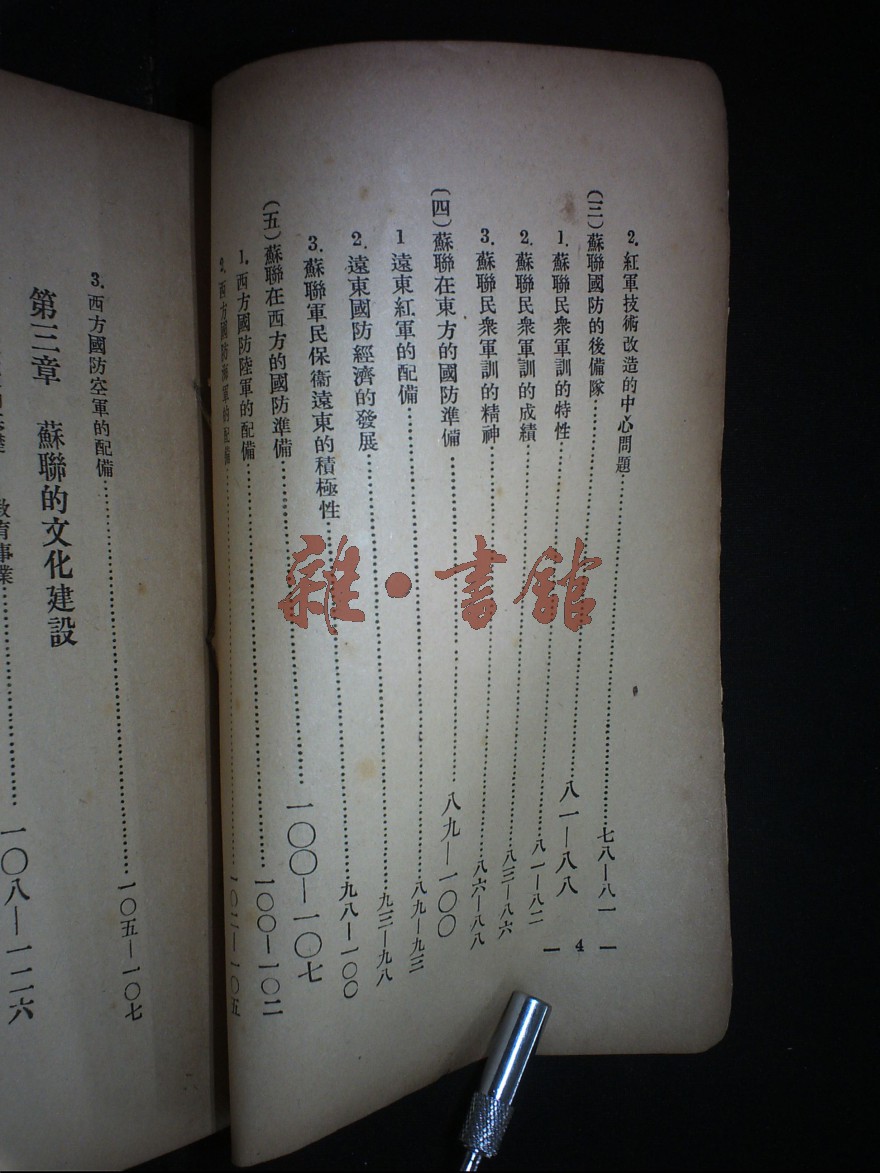 2. 紅軍技術改造的中心問題……七八—八一
(三)蘇聯國防的後備隊……八一—八八
1. 蘇聯民衆軍訓的特性……八一—八二
2. 蘇聯民衆軍訓的成績……八三—八六
3. 蘇聯民衆軍訓的精神……八六—八八
(四)蘇聯在東方的國防準備……八九—一〇〇
1 遠東紅軍的配備……八九—九三
2. 遠東國防經濟的發展……九三—九八
3. 蘇聯軍民保衞遠東的積極性……九八—一〇〇
(五)蘇聯在西方的國防準備……一〇〇—一〇七
1. 西方國防陸軍的配備……一〇〇—一〇二
2. 西方國防海軍的配備……一〇二—一〇五
— 4 —
3. 西方國防空軍的配備……一〇五—一〇七
第三章 蘇聯的文化建設
教育事業……一〇八—一二六
雜·書館